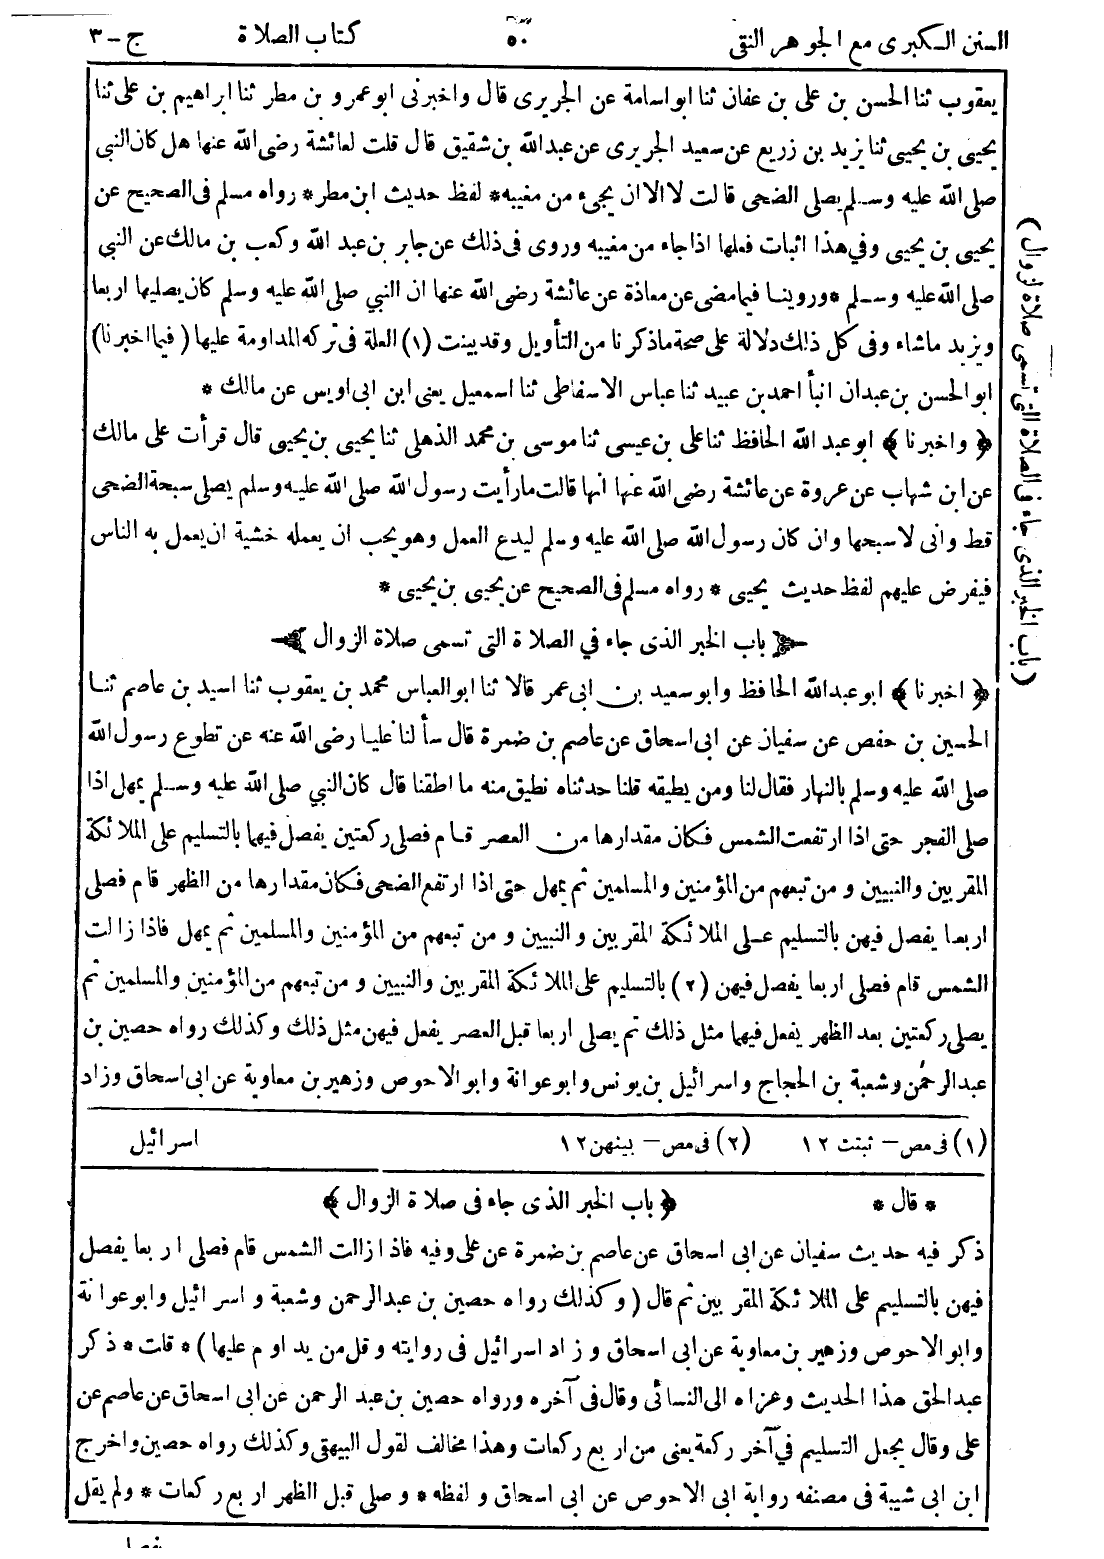 السنن الكبرى مع الجوهر النقى ٥٠ كتاب الصلاة ج-٣
يعقوب ثنا الحسن بن على بن عفان ثنا ابواسامة عن الجريرى قال واخبرنى ابوعمرو بن مطر ثنا ابراهيم بن على ثنا
يحيى بن يحيى ثنا يزيد بن زريع عن سعيد الجريرى عن عبدالله بن شقيق قال قلت لعائشة رضى الله عنها هل كان النبي
صلى الله عليه وسلم يصلى الضحى قالت لا الا ان يجىء من مغيبه * لفظ حديث ابن مطر * رواه مسلم فى الصحيح عن
يحيى بن يحيى وفي هذا اثبات فعلها اذا جاء من مغيبه وروى فى ذلك عن جابر بن عبد الله وكعب بن مالك عن النبي
صلى الله عليه وسلم * وروينا فيما مضى عن معاذة عن عائشة رضى الله عنها ان النبي صلى الله عليه وسلم كان يصليها اربعا
ويزيد ماشاء وفى كل ذلك دلالة على صحة ماذكرنا من التأويل وقد بينت (١) العلة فى تركه المداومة عليها (فيما اخبرنا)
ابو الحسن بن عبدان انبأ احمد بن عبيد ثنا عباس الاسفاطى ثنا اسمعيل يعنى ابن ابى اويس عن مالك *
﴿ واخبرنا ﴾ ابوعبد الله الحافظ ثنا على بن عيسى ثنا موسى بن محمد الذهلى ثنا يحيى بن يحيى قال قرأت على مالك
عن ابن شهاب عن عروة عن عائشة رضى الله عنها انها قالت مارأيت رسول الله صلى الله عليه وسلم يصلى سبحة الضحى
قط وانى لاسبحها وان كان رسول الله صلى الله عليه وسلم ليدع العمل وهو يحب ان يعمله خشية ان يعمل به الناس
فيفرض عليهم لفظ حديث يحيى * رواه مسلم فى الصحيح عن يحيى بن يحيى *
باب الخبر الذى جاء في الصلاة التى تسمى صلاة الزوال
(باب الخبر الذى جاء فى الصلاة التى تسمى صلاة لزوال)
﴿ اخبرنا ﴾ ابوعبدالله الحافظ وابوسعيد بن ابى عمر قالا ثنا ابوالعباس محمد بن يعقوب ثنا اسيد بن عاصم ثنا
الحسين بن حفص عن سفيان عن ابى اسحاق عن عاصم بن ضمرة قال سألنا عليا رضى الله عنه عن تطوع رسول الله
صلى الله عليه وسلم بالنهار فقال لنا ومن يطيقه قلنا حدثناه نطيق منه ما اطقنا قال كان النبي صلى الله عليه وسلم يمهل اذا
صلى الفجر حتى اذا ارتفعت الشمس فكان مقدارها من العصر قام فصلى ركعتين يفصل فيهما بالتسليم على الملائكة
المقربين والنبيين ومن تبعهم من المؤمنين والمسلمين ثم يمهل حتى اذا ارتفع الضحى فكان مقدارها من الظهر قام فصلى
اربعا يفصل فيهن بالتسليم على الملائكة المقربين والنبيين ومن تبعهم من المؤمنين والمسلمين ثم يمهل فاذا زالت
الشمس قام فصلى اربعا يفصل فيهن (٢) بالتسليم على الملائكة المقربين والنبيين ومن تبعهم من المؤمنين والمسلمين ثم
يصلى ركعتين بعد الظهر يفعل فيهما مثل ذلك ثم يصلى اربعا قبل العصر يفعل فيهن مثل ذلك وكذلك رواه حصين بن
عبدالرحمن وشعبة بن الحجاج واسرائيل بن يونس وابوعوانة وابو الاحوص وزهير بن معاوية عن ابى اسحاق وزاد
(١) فى مص - ثبتت ١٢ (٢) فى مص - بينهن ١٢ اسرائيل
* قال * ﴿ باب الخبر الذى جاء فى صلاة الزوال ﴾
ذكر فيه حديث سفيان عن ابى اسحاق عن عاصم بن ضمرة عن على وفيه فاذا زالت الشمس قام فصلى اربعا يفصل
فيهن بالتسليم على الملائكة المقربين ثم قال (وكذلك رواه حصين بن عبدالرحمن وشعبة واسرائيل وابوعوانة
وابو الاحوص وزهير بن معاوية عن ابى اسحاق وزاد اسرائيل فى روايته وقل من يداوم عليها) * قلت * ذكر
عبدالحق هذا الحديث وعزاه الى النسائى وقال فى آخره ورواه حصين بن عبد الرحمن عن ابى اسحاق عن عاصم عن
على وقال يجعل التسليم في آخر ركعة يعنى من اربع ركعات وهذا مخالف لقول البيهقى وكذلك رواه حصين واخرج
ابن ابى شيبة فى مصنفه رواية ابى الاحوص عن ابى اسحاق ولفظه * وصلى قبل الظهر اربع ركعات * ولم يقل
يفصل